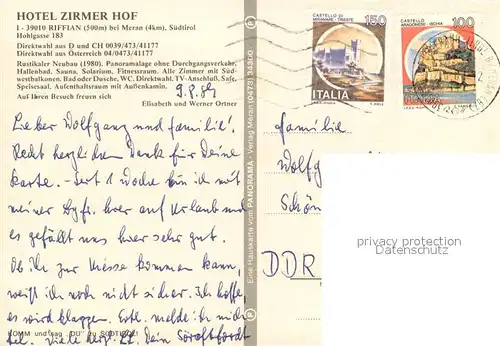 HOTEL ZIRMER HOF
I - 39010 RIFFIAN (500m) bei Meran (4km), Südtirol
Hohlgasse 183
Direktwahl aus D und CH 0039/473/41177
Direktwahl aus Österreich 04/0473/41177
Rustikaler Neubau (1980). Panoramalage ohne Durchgangsverkehr.
Hallenbad. Sauna, Solarium, Fitnessraum. Alle Zimmer mit Süd-
westbalkonen, Bad oder Dusche, WC, Direktwahl, TV-Anschluß, Safe,
Speisesaal. Aufenthaltsraum mit Außenkamin.
Auf Ihren Besuch freuen sich
Elisabeth und Werner Ortner
9.8.89
Lieber Wolfgang und Familie!
Recht herzlichen Dank für Deine
Karte. - Seit 1 Woche bin ich mit
meiner hier auf Urlaub und
es gefällt uns hier sehr gut.
Ob ich zur Messe kommen kann,
weiß ich noch nicht sicher. Ich hoffe,
es wird klappen. melde ich mich
Viele herzl. Dein
KOMM und sag "DU" zu SÜDTIROL!
Eine Hauskarte vom PANORAMA - Verlag Meran (0473) 34300
CASTELLO DI
MIRAMARE - TRIESTE
150
ITALIA
CASTELLO
ARAGONESE - ISCHIA
100
Familie
Wolfg
Schön
DDR
privacy protection
Datenschutz